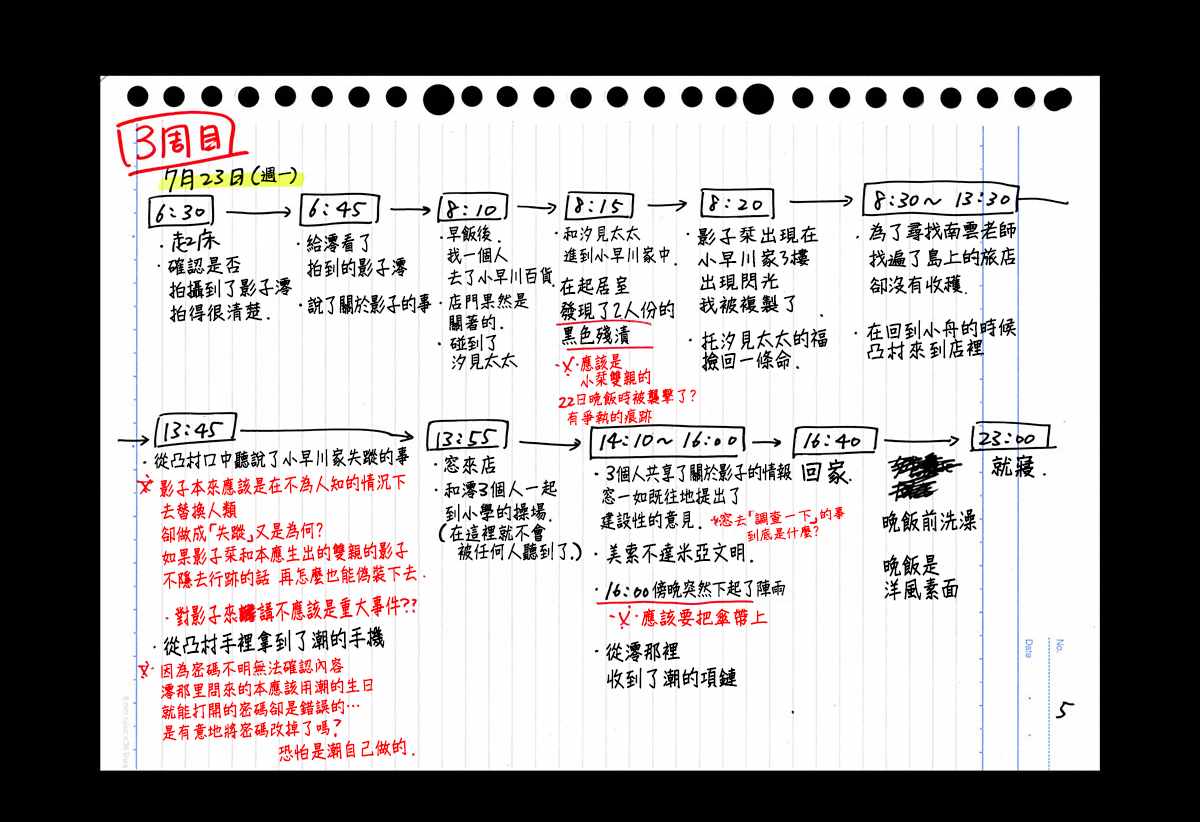 3周目
7月23日(週一)
6:30
・起床
・確認是否
拍攝到了影子澪
拍得很清楚.
6:45
・給澪看了
拍到的影子澪
・說了關於影子的事
8:10
・早飯後.
我一個人
去了小早川百貨
・店門果然是
關著的.
・碰到了
汐見太太
8:15
・和汐見太太
進到小早川家中.
・在起居室
發現了2人份的
黑色殘漬
※・應該是
小栞雙親的
22日晚飯時被襲擊了?
有爭執的痕跡
8:20
・影子栞出現在
小早川家3樓
出現閃光
我被複製了.
・托汐見太太的福
撿回一條命.
8:30~13:30
・為了尋找南雲老師
找遍了島上的旅店
卻沒有收穫.
・在回到小舟的時候
凸村來到店裡
13:45
・從凸村口中聽說了小早川家失蹤的事
※影子本來應該是在不為人知的情況下
去替換人類
卻做成「失蹤」又是為何?
如果影子栞和本應生出的雙親的影子
不隱去行跡的話 再怎麼也能偽裝下去.
・對影子來講不應該是重大事件??
・從凸村手裡拿到了潮的手機
※因為密碼不明無法確認內容
澪那里問來的本應該用潮的生日
就能打開的密碼卻是錯誤的…
是有意地將密碼改掉了嗎?
恐怕是潮自己做的.
13:55
・窓來店
・和澪3個人一起
到小學的操場.
(在這裡就不會
被任何人聽到了.)
14:10~16:00
・3個人共享了關於影子的情報
窓一如既往地提出了
建設性的意見.
窓去「調查一下」的事
到底是什麼?
・美索不達米亞文明.
・16:00傍晚突然下起了陣雨
※・應該要把傘帶上
・從澪那裡
收到了潮的項鏈
16:40
回家.
晚飯前洗澡
晚飯是
洋風素面
23:00
就寢.
No.
Date
5